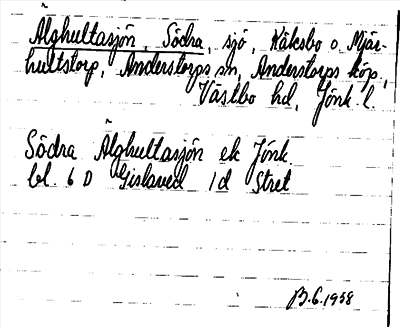 Älghultasjön, Södra, sjö, Kåksbo o. Mjär-
hultstorp, Anderstorps sn, Anderstorps köp,
Västbo hd, Jönk. l.
Södra Älghultasjön ek Jönk.
bl. 6 D Gislaved 1d Stret
B.G. 1958